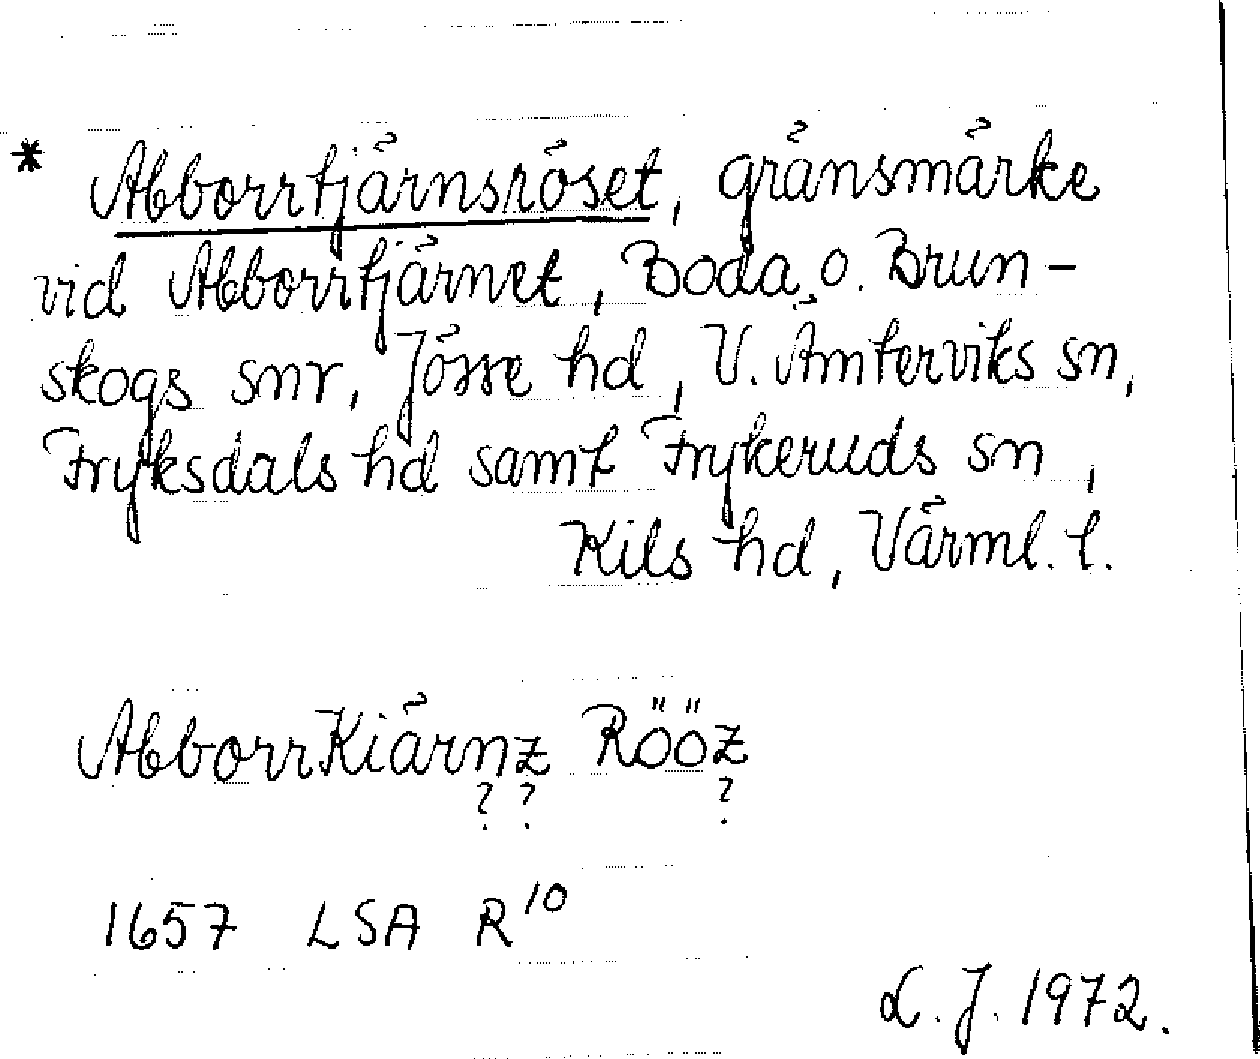 * Abborrtjärnsröset, gränsmärke
vid Abborrtjärnet, Boda o. Brun-
skogs snr, Jösse hd, V. Ämterviks sn,
Fryksdals hd samt Frykeruds sn,
Kils hd, Värml. l.
AbborrKiärnz Rööz
? ? ?
1657 LSA R¹⁰
L. J. 1972.